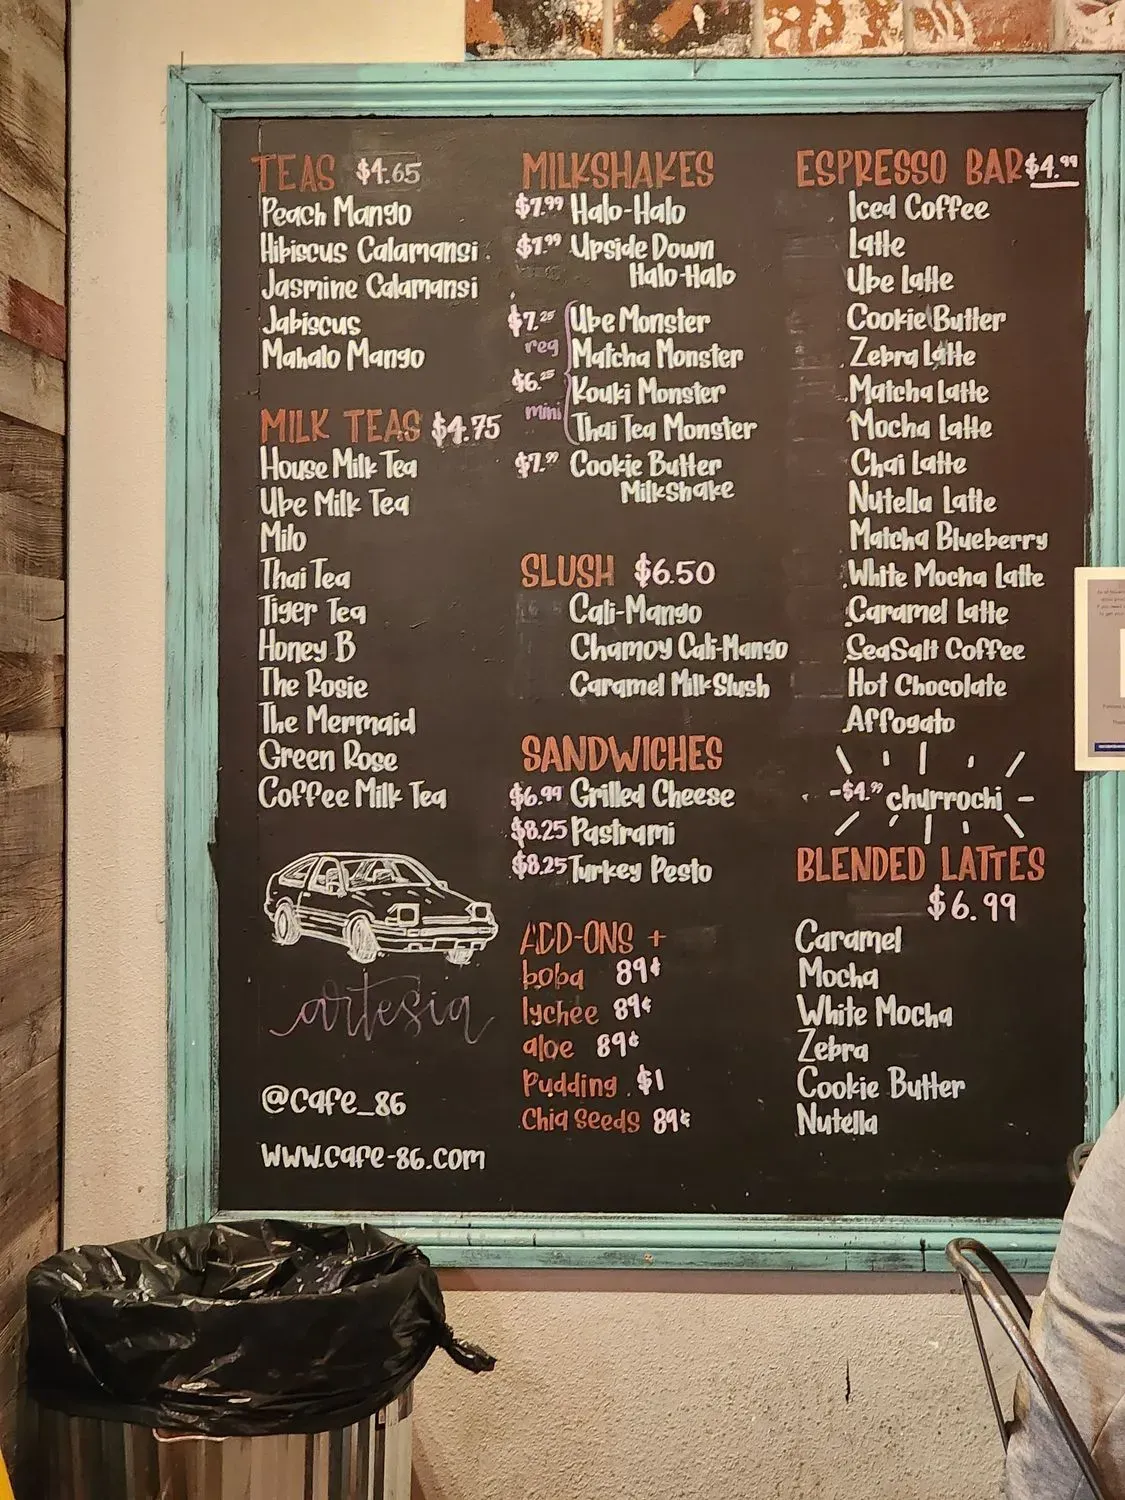 TEAS $4.65
Peach Mango
Hibiscus Calamansi
Jasmine Calamansi
Jabiscus
Mahalo Mango
MILK TEAS $4.75
House Milk Tea
Ube Milk Tea
Milo
Thai Tea
Tiger Tea
Honey B
The Rosie
The Mermaid
Green Rose
Coffee Milk Tea
artesia
@cafe_86
www.cafe-86.com
MILKSHAKES
$7.99 Halo-Halo
$7.99 Upside Down
Halo-Halo
$7.25 Ube Monster
reg Matcha Monster
$6.25 Kouki Monster
mini Thai Tea Monster
$7.99 Cookie Butter
Milkshake
SLUSH $6.50
Cali-Mango
Chamoy Cali-Mango
Caramel Milk Slush
SANDWICHES
$6.99 Grilled Cheese
$8.25 Pastrami
$8.25 Turkey Pesto
ADD-ONS +
boba 89¢
lychee 89¢
aloe 89¢
Pudding $1
Chia Seeds 89¢
ESPRESSO BAR $4.99
Iced Coffee
Latte
Ube Latte
Cookie Butter
Zebra Latte
Matcha Latte
Mocha Latte
Chai Latte
Nutella Latte
Matcha Blueberry
White Mocha Latte
Caramel Latte
SeaSalt Coffee
Hot Chocolate
Affogato
-$4.99 churrochi -
BLENDED LATTES
$6.99
Caramel
Mocha
White Mocha
Zebra
Cookie Butter
Nutella